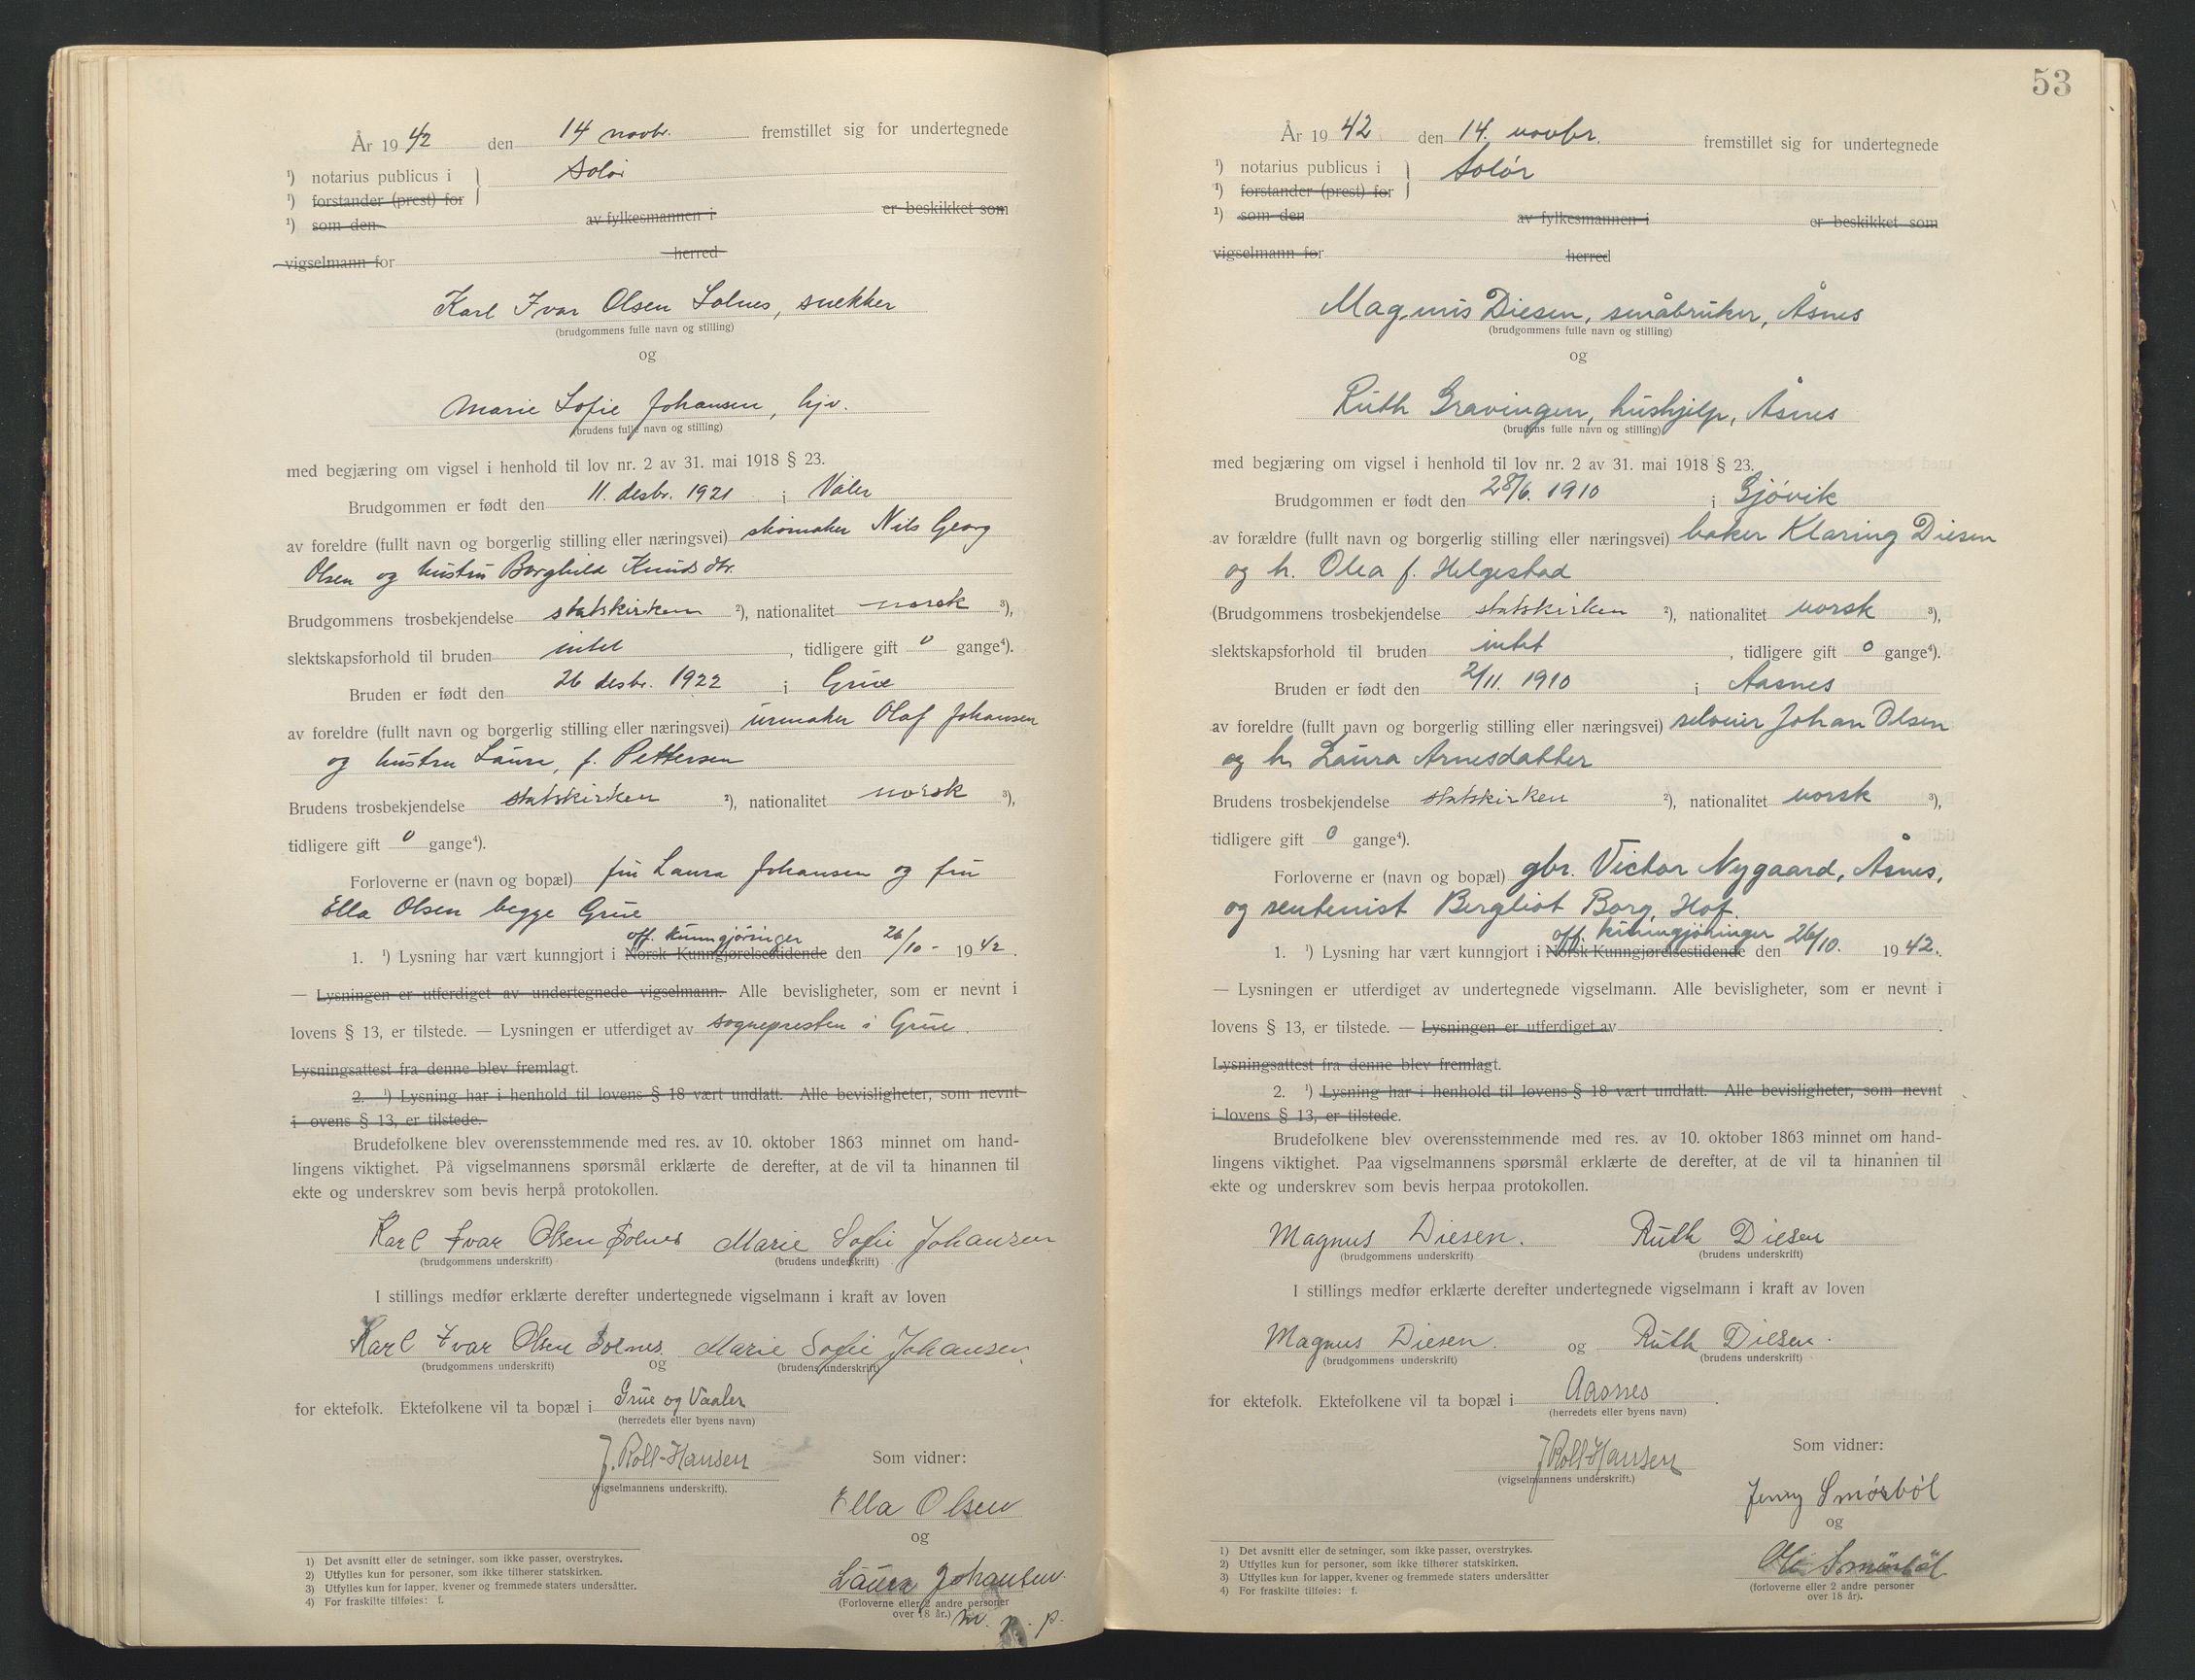 År 1942 den 14 novbr. fremstillet sig for undertegnede
¹) notarius publicus i } Solør
¹) forstander (prest) for
¹) som den av fylkesmannen i er beskikket som
vigselmann for herred
Karl Ivar Olsen Solnes, snekker
(brudgommens fulle navn og stilling)
og
Marie Sofie Johansen, hjv.
(brudens fulle navn og stilling)
med begjæring om vigsel i henhold til lov nr. 2 av 31. mai 1918 § 23.
Brudgommen er født den 11. desbr. 1921 i Våler
av foreldre (fullt navn og borgerlig stilling eller næringsvei) skomaker Nils Georg
Olsen og hustru Borghild Knudsdtr.
Brudgommens trosbekjendelse statskirken ²), nationalitet norsk ³),
slektskapsforhold til bruden intet, tidligere gift 0 gange⁴).
Bruden er født den 26 desbr. 1922 i Grue
av foreldre (fullt navn og borgerlig stilling eller næringsvei) urmaker Olaf Johansen
og hustru Laura, f. Pettersen
Brudens trosbekjendelse statskirken ²), nationalitet norsk ³),
tidligere gift 0 gange⁴).
Forloverne er (navn og bopæl) fru Laura Johansen og fru
Ella Olsen begge Grue
off. kunngjøringer
1. ¹) Lysning har vært kunngjort i Norsk Kunngjørelsestidende den 26/10 - 1942.
— Lysningen er utferdiget av undertegnede vigselmann. Alle bevisligheter, som er nevnt i
lovens § 13, er tilstede. — Lysningen er utferdiget av sognepresten i Grue.
Lysningsattest fra denne blev fremlagt.
2. ¹) Lysning har i henhold til lovens § 18 vært undlatt. Alle bevisligheter, som nevnt
i ovens § 13, er tilstede.
Brudefolkene blev overensstemmende med res. av 10. oktober 1863 minnet om hand-
lingens viktighet. På vigselmannens spørsmål erklærte de derefter, at de vil ta hinannen til
ekte og underskrev som bevis herpå protokollen.
Karl Ivar Olsen Solnes Marie Sofie Johansen
(brudgommens underskrift) (brudens underskrift)
I stillings medfør erklærte derefter undertegnede vigselmann i kraft av loven
Karl Ivar Olsen Solnes og Marie Sofie Johansen
(brudgommens underskrift) (brudens underskrift)
for ektefolk. Ektefolkene vil ta bopæl i Grue og Vaaler
(herredets eller byens navn)
J. Roll-Hansen
(vigselmannens underskrift).
Som vidner:
Ella Olsen
og
Laura Johansen.
(Forloverne eller 2 andre personer
over 18 år.) m. p. p.
1) Det avsnitt eller de setninger, som ikke passer, overstrykes.
2) Utfylles kun for personer, som ikke tilhører statskirken.
3) Utfylles kun for lapper, kvener og fremmede staters undersåtter.
4) For fraskilte tilføies: f.
53
År 1942 den 14. novbr. fremstillet sig for undertegnede
¹) notarius publicus i } Solør
¹) forstander (prest) for
¹) som den av fylkesmannen i er beskikket som
vigselmann for herred
Magnus Diesen, småbruker, Åsnes
(brudgommens fulle navn og stilling)
og
Ruth Gravingen, hushjelp, Åsnes
(brudens fulle navn og stilling)
med begjæring om vigsel i henhold til lov nr. 2 av 31. mai 1918 § 23.
Brudgommen er født den 28/6. 1910 i Gjøvik
av forældre (fullt navn og borgerlig stilling eller næringsvei) baker Klaring Diesen
og h. Olea f. Helgestad
(Brudgommens trosbekjendelse statskirken ²), nationalitet norsk ³),
slektskapsforhold til bruden intet, tidligere gift 0 gange⁴).
Bruden er født den 2/11. 1910 i Aasnes
av foreldre (fullt navn og borgerlig stilling eller næringsvei) selveier Johan Olsen
og h. Laura Arnesdatter
Brudens trosbekjendelse statskirken ²), nationalitet norsk ³),
tidligere gift 0 gange⁴).
Forloverne er (navn og bopæl) gbr. Victor Nygaard, Åsnes,
og rentenist Bergliot Borg, Hof.
off. kunngjøringer
1. ¹) Lysning har vært kunngjort i Norsk Kunngjørelsestidende den 26/10. 1942.
— Lysningen er utferdiget av undertegnede vigselmann. Alle bevisligheter, som er nevnt i
lovens § 13, er tilstede. — Lysningen er utferdiget av
Lysningsattest fra denne blev fremlagt.
2. ¹) Lysning har i henhold til lovens § 18 vært undlatt. Alle bevisligheter, som nevnt
i lovens § 13, er tilstede.
Brudefolkene blev overensstemmende med res. av 10. oktober 1863 minnet om hand-
lingens viktighet. Paa vigselmannens spørsmål erklærte de derefter, at de vil ta hinannen til
ekte og underskrev som bevis herpaa protokollen.
Magnus Diesen. Ruth Diesen
(brudgommens underskrift) (brudens underskrift)
I stillings medfør erklærte derefter undertegnede vigselmann i kraft av loven
Magnus Diesen. og Ruth Diesen.
(brudgommens underskrift) (brudens underskrift)
for ektefolk. Ektefolkene vil ta bopæl i Aasnes.
(herredets eller byens navn)
J Roll-Hansen
(vigselmannens underskrift.)
Som vidner:
Jenny Smørbøl
og
Ole Smørbøl
(forloverne eller 2 andre personer
over 18 år).
1) Det avsnitt eller de setninger, som ikke passer, overstrykes.
2) Utfylles kun for personer, som ikke tilhører statskirken.
3) Utfylles kun for lapper, kvener og fremmede staters undersåtter
4) For fraskilte tilføies: f.